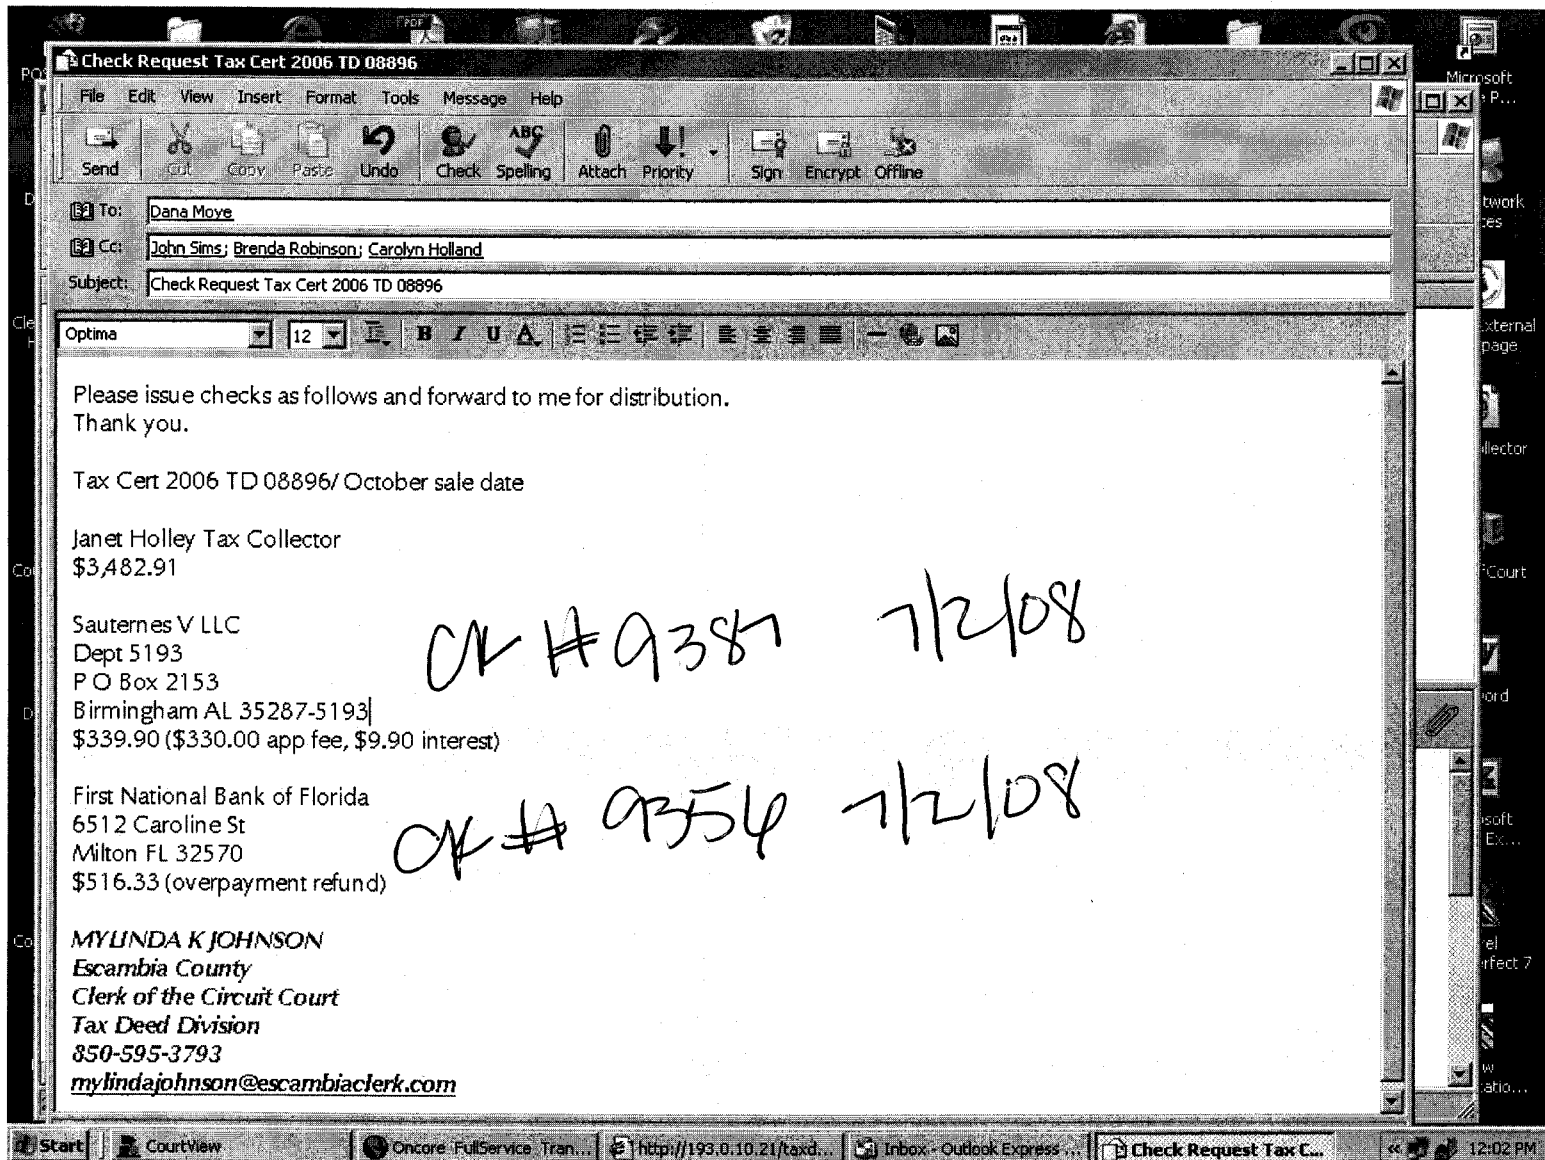 Check Request Tax Cert 2006 TD 08896
File Edit View Insert Format Tools Message Help
Send Cut Copy Paste Undo Check Spelling Attach Priority Sign Encrypt Offline
To: Dana Moye
Cc: John Sims; Brenda Robinson; Carolyn Holland
Subject: Check Request Tax Cert 2006 TD 08896
Optima 12
Please issue checks as follows and forward to me for distribution.
Thank you.
Tax Cert 2006 TD 08896/ October sale date
Janet Holley Tax Collector
$3,482.91
Sauternes V LLC
Dept 5193
P O Box 2153
Birmingham AL 35287-5193
$339.90 ($330.00 app fee, $9.90 interest)
CK # 9387 7/2/08
First National Bank of Florida
6512 Caroline St
Milton FL 32570
$516.33 (overpayment refund)
CK # 9356 7/2/08
MYLINDA K JOHNSON
Escambia County
Clerk of the Circuit Court
Tax Deed Division
850-595-3793
mylindajohnson@escambiaclerk.com
Microsoft
Start CourtView Oncore FullService Tran... http://193.0.10.21/taxd... Inbox - Outlook Express ... Check Request Tax C... 12:02 PM